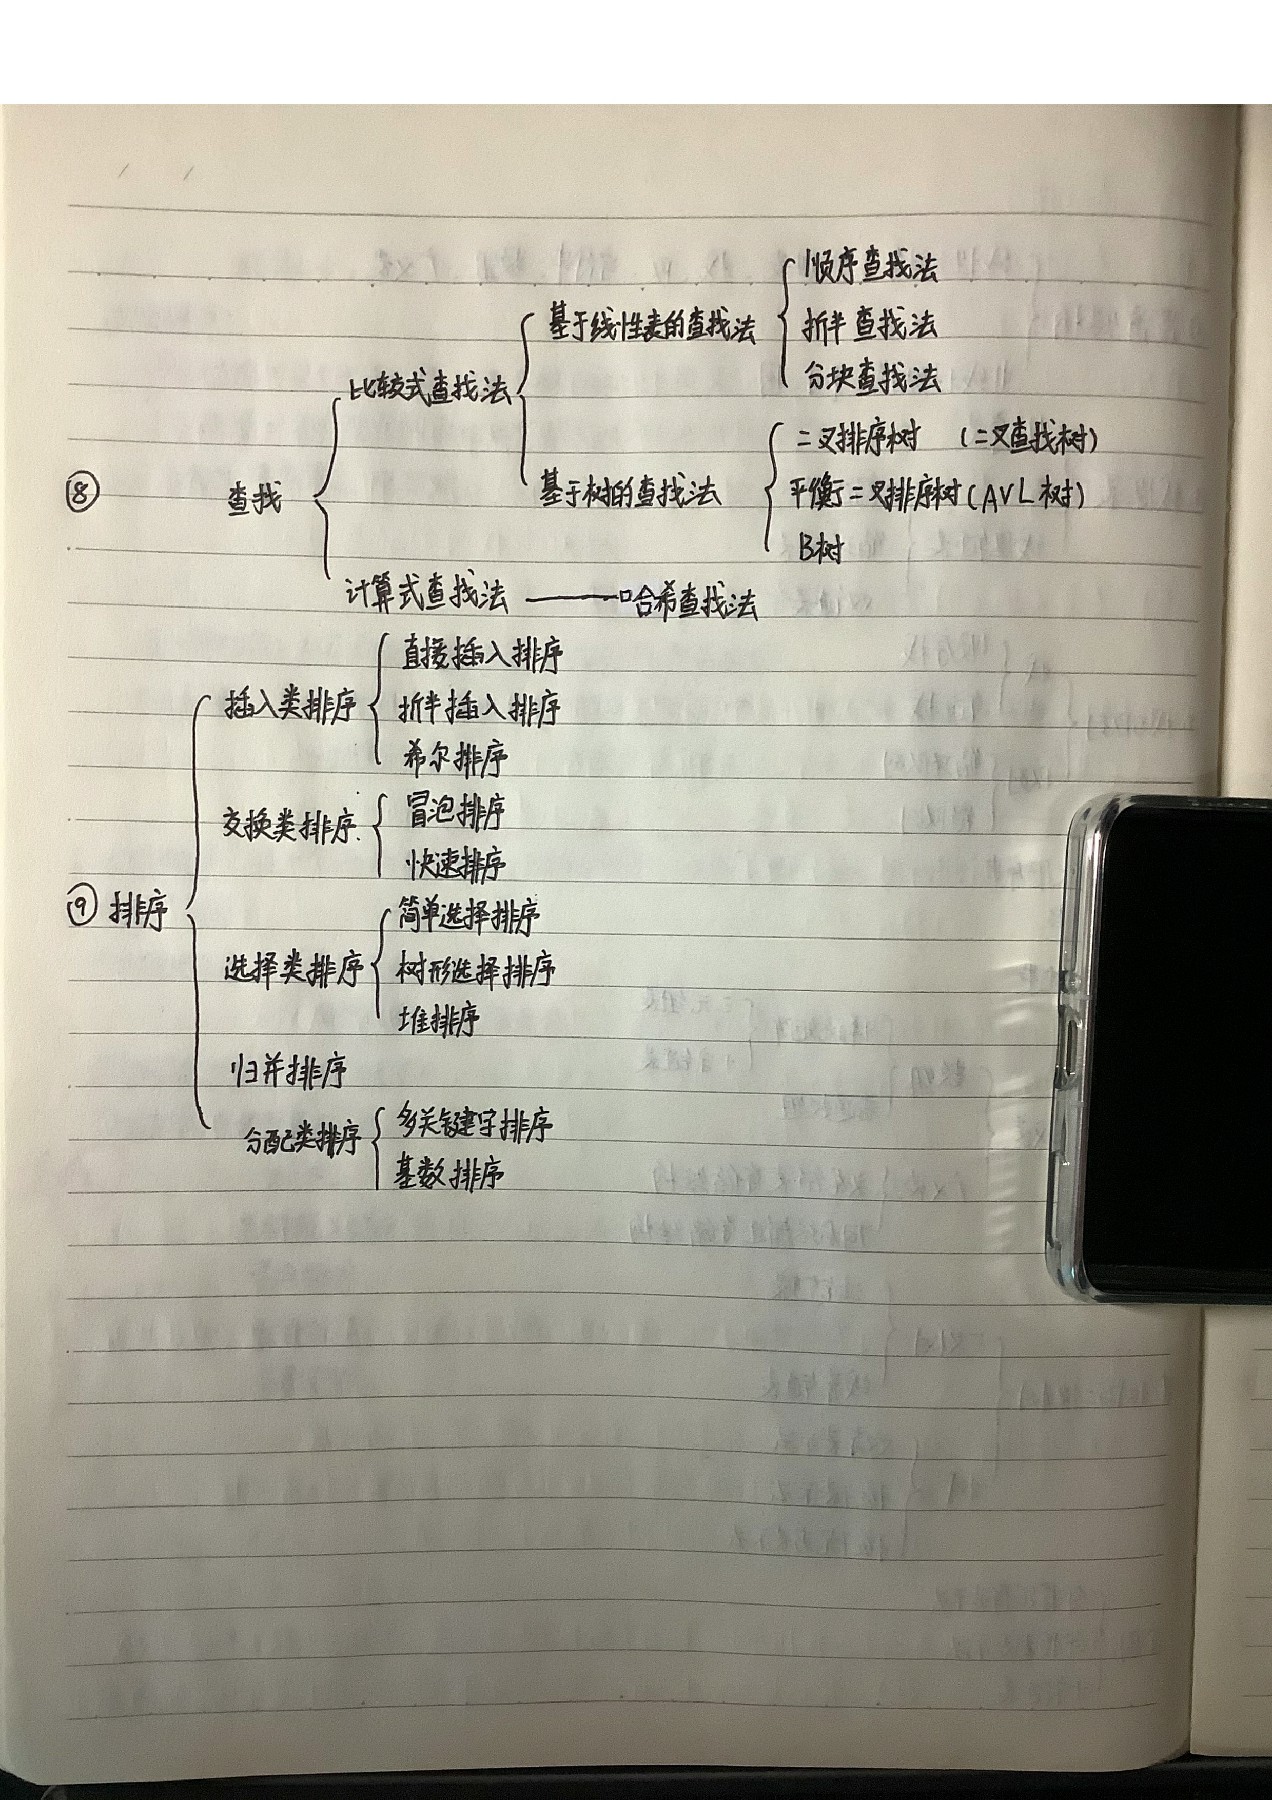 顺序查找法
基于线性表的查找法
折半查找法
分块查找法
比较式查找法
二叉排序树 (二叉查找树)
⑧ 查找
基于树的查找法
平衡二叉排序树(AVL树)
B树
计算式查找法 —— 哈希查找法
直接插入排序
插入类排序
折半插入排序
希尔排序
冒泡排序
交换类排序.
快速排序
⑨ 排序
简单选择排序
选择类排序
树形选择排序
堆排序
归并排序
分配类排序
多关键字排序
基数排序